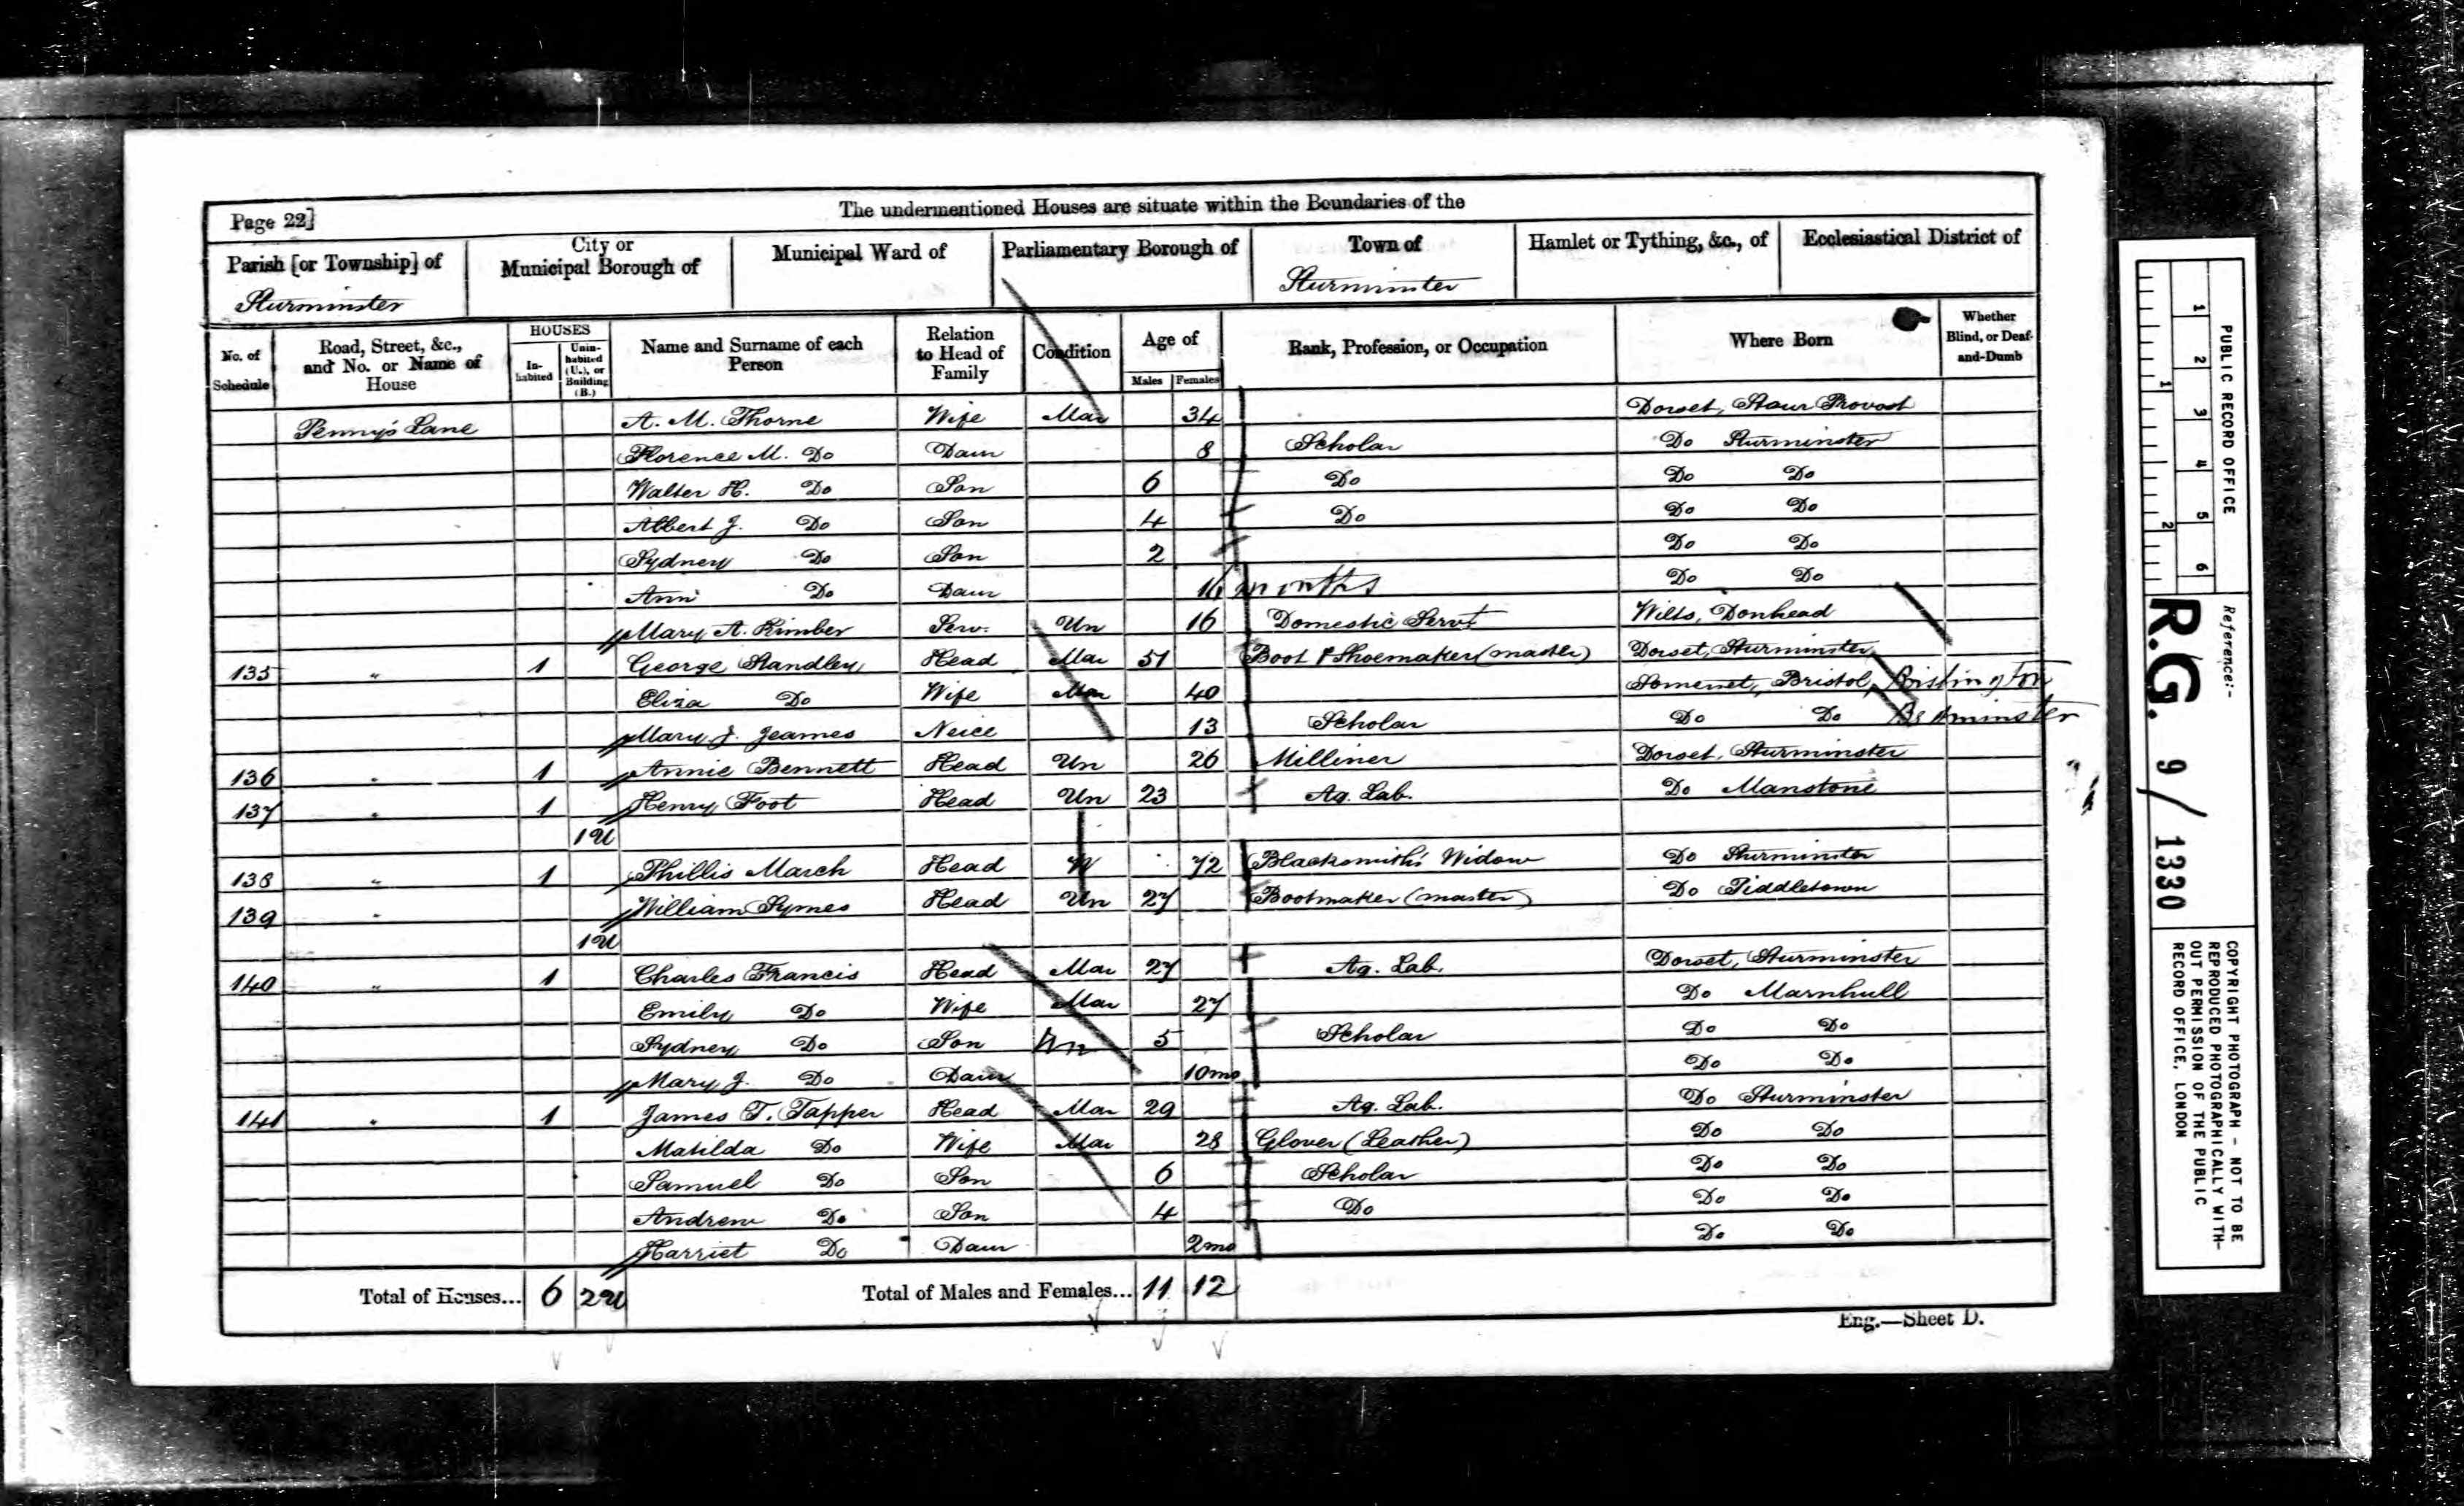 Page 22]
The undermentioned Houses are situate within the Boundaries of the
Parish [or Township] of
Sturminster
City or
Municipal Borough of
Municipal Ward of
Parliamentary Borough of
Town of
Sturminster
Hamlet or Tything, &c., of
Ecclesiastical District of
No. of
Schedule
Road, Street, &c.,
and No. or Name of
House
HOUSES
In-
habited
Unin-
habited
(U.), or
Building
(B.)
Name and Surname of each
Person
Relation
to Head of
Family
Condition
Age of
Males Females
Rank, Profession, or Occupation
Where Born
Whether
Blind, or Deaf-
and-Dumb
Penny's Lane A. M. Thorne Wife Mar 34 Dorset, Stour Provost
Florence M. Do Daur 8 Scholar Do Sturminster
Walter H. Do Son 6 Do Do Do
Albert J. Do Son 4 Do Do Do
Sydney Do Son 2 Do Do
Ann Do Daur months Do Do
Mary A. Kimber Serv. Un 16 Domestic Servt Wilts, Donhead
135 " 1 George Standley Head Mar 51 Boot & Shoemaker (master) Dorset, Sturminster
Eliza Do Wife Mar 40 Somerset, Bristol, Brislington
Mary J. Jeames Neice 13 Scholar Do Do Bedminster
136 " 1 Annie Bennett Head Un 26 Milliner Dorset, Sturminster
137 " 1 Henry Foot Head Un 23 Ag. Lab. Do Manstone
1U
138 " 1 Phillis March Head W 72 Blacksmith's Widow Do Sturminster
139 " William Symes Head Un 27 Bootmaker (master) Do Piddletown
1U
140 " 1 Charles Francis Head Mar 27 Ag. Lab. Dorset, Sturminster
Emily Do Wife Mar 27 Do Marnhull
Sydney Do Son Un 5 Scholar Do Do
Mary J. Do Daur 10mo Do Do
141 " 1 James T. Tapper Head Mar 29 Ag. Lab. Do Sturminster
Matilda Do Wife Mar 28 Glover (Leather) Do Do
Samuel Do Son 6 Scholar Do Do
Andrew Do Son 4 Do Do Do
Harriet Do Daur 2mo Do Do
Total of Houses... 6 2U Total of Males and Females... 11 12
Eng.—Sheet D.
PUBLIC RECORD OFFICE
1 2 3 4 5 6
1 2
Reference:-
R.G. 9/1330
COPYRIGHT PHOTOGRAPH - NOT TO BE
REPRODUCED PHOTOGRAPHICALLY WITH-
OUT PERMISSION OF THE PUBLIC
RECORD OFFICE, LONDON